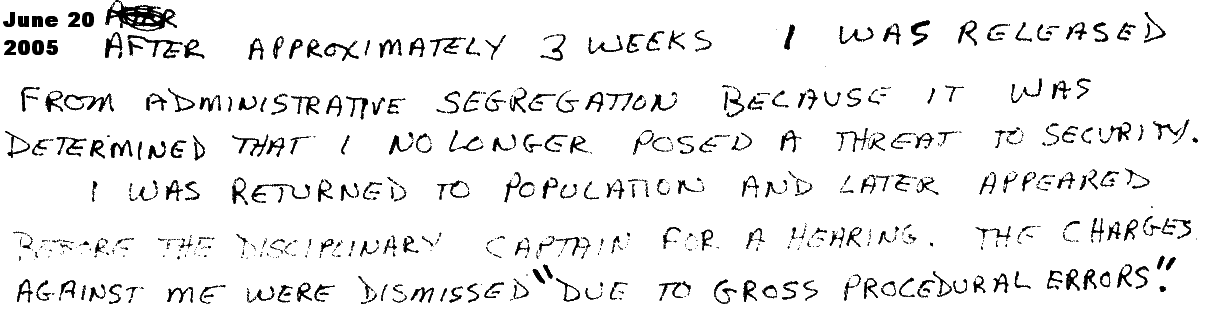 June 20
2005 AFTER APPROXIMATELY 3 WEEKS I WAS RELEASED
FROM ADMINISTRATIVE SEGREGATION BECAUSE IT WAS
DETERMINED THAT I NO LONGER POSED A THREAT TO SECURITY.
I WAS RETURNED TO POPULATION AND LATER APPEARED
BEFORE THE DISCIPLINARY CAPTAIN FOR A HEARING. THE CHARGES
AGAINST ME WERE DISMISSED "DUE TO GROSS PROCEDURAL ERRORS".